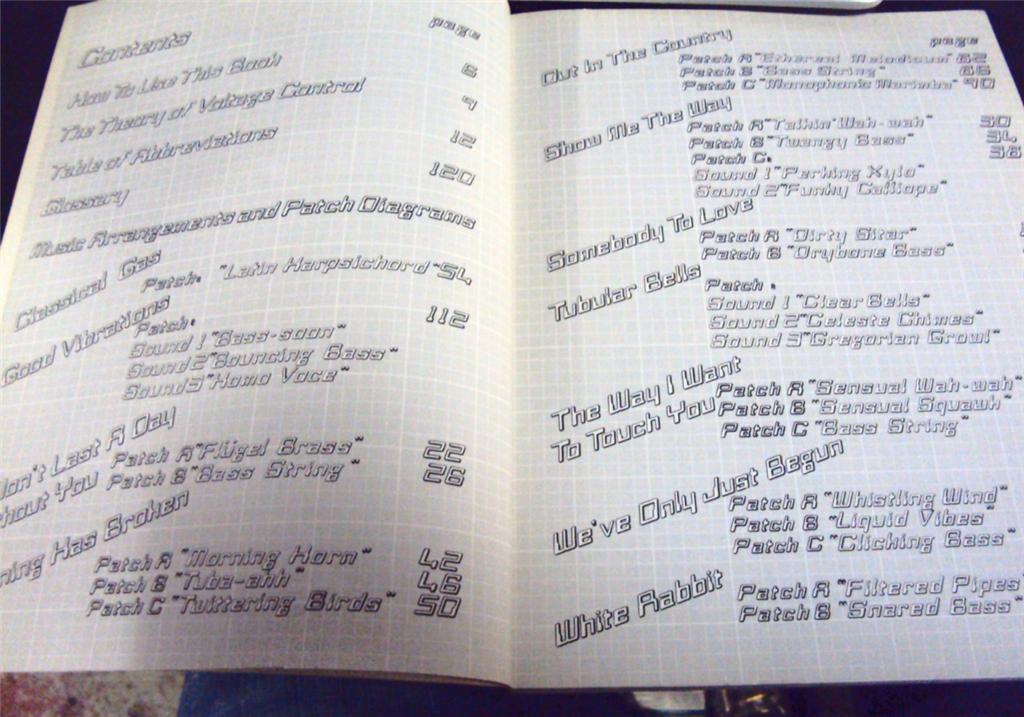 Contents
page
How To Use This Book 6
The Theory of Voltage Control 9
Table of Abbreviations 12
Glossary 120
Music Arrangements and Patch Diagrams
Classical Gas
Patch. "Latin Harpsichord" 54
Good Vibrations 112
Patch.
Sound 1 "Bass-soon"
Sound 2 "Bouncing Bass"
Sound 3 "Homo Voce"
Last A Day
You
Patch A "Flügel Brass" 22
Patch B "Bass String" 26
Has Broken
Patch A "Morning Horn" 42
Patch B "Tuba-ahh" 46
Patch C "Twittering Birds" 50
page
Out In The Country
Patch A "Ethereal Melodica" 62
Patch B "Bass String" 66
Patch C "Monophonic Marimba" 90
Show Me The Way
Patch A "Talkin' Wah-wah" 30
Patch B "Twangy Bass" 34
Patch C. 36
Sound 1 "Perking Xylo"
Sound 2 "Funky Calliope"
Somebody To Love
Patch A "Dirty Sitar"
Patch B "Drybone Bass"
Tubular Bells
Patch.
Sound 1 "Clear Bells"
Sound 2 "Celeste Chimes"
Sound 3 "Gregorian Growl"
The Way I Want
To Touch You
Patch A "Sensual Wah-wah"
Patch B "Sensual Squawk"
Patch C "Bass String"
We've Only Just Begun
Patch A "Whistling Wind"
Patch B "Liquid Vibes"
Patch C "Clicking Bass"
White Rabbit
Patch A "Filtered Pipes"
Patch B "Snared Bass"